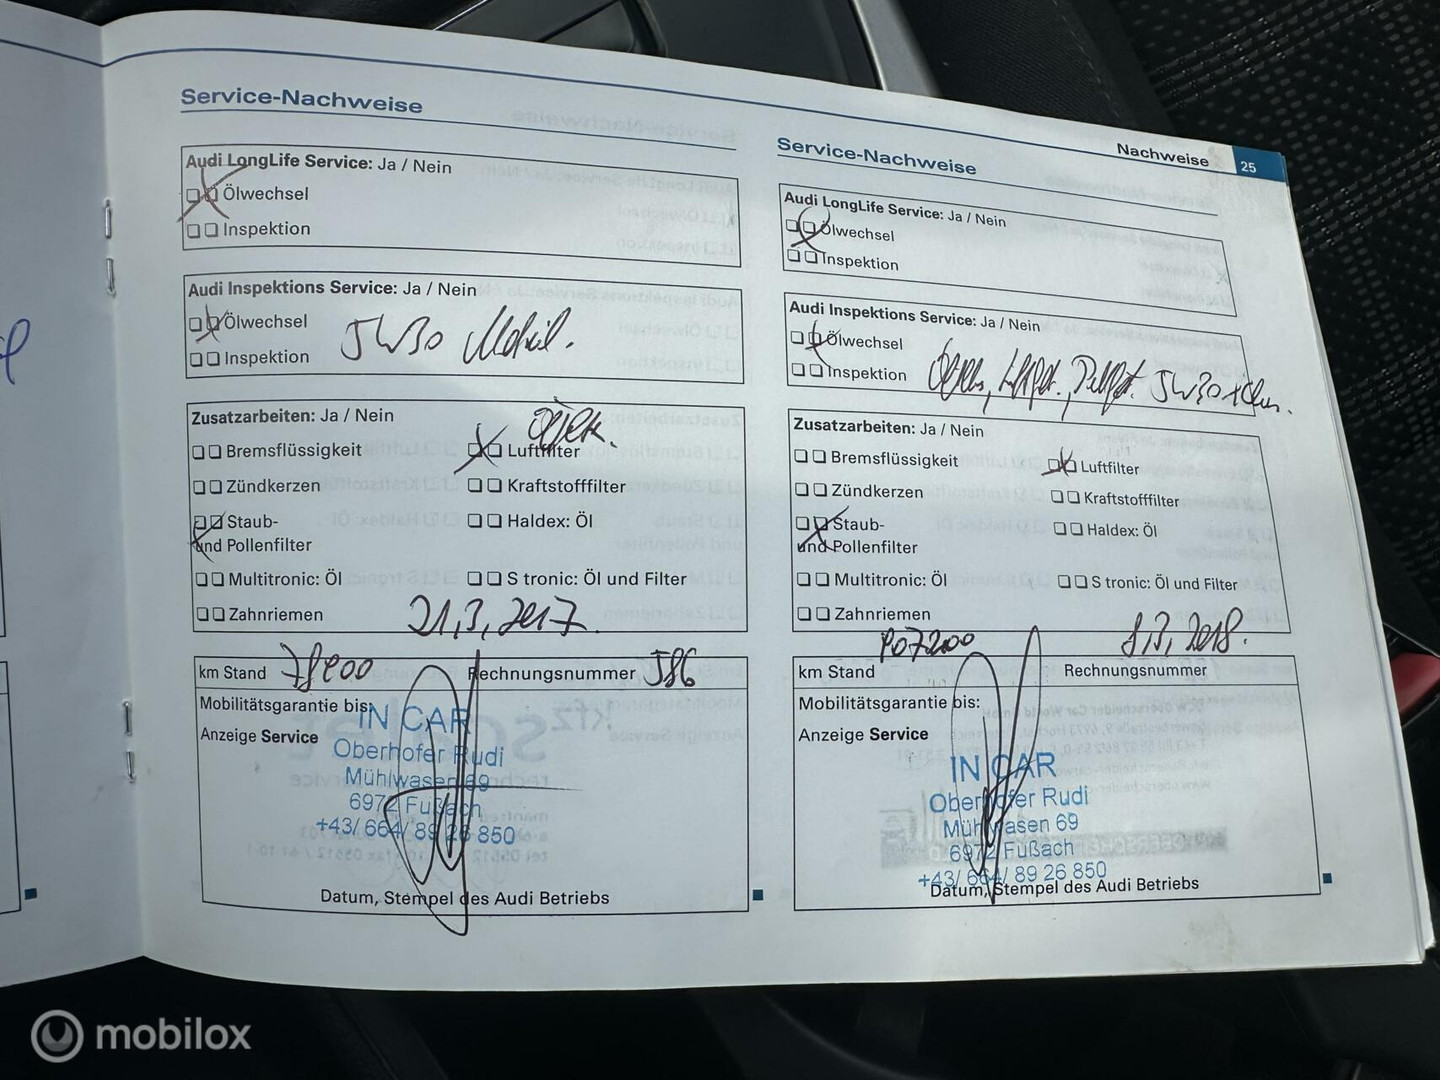 Service-Nachweise
Audi LongLife Service: Ja / Nein
Ölwechsel
Inspektion
Audi Inspektions Service: Ja / Nein
Ölwechsel
Inspektion
5W30 Mobil.
Zusatzarbeiten: Ja / Nein
Bremsflüssigkeit
Luftfilter
Zündkerzen
Kraftstofffilter
Staub-
und Pollenfilter
Haldex: Öl
Multitronic: Öl
S tronic: Öl und Filter
Zahnriemen
21,3,2017.
km Stand
Rechnungsnummer 586
Mobilitätsgarantie bis:
Anzeige Service
IN CAR
Oberhofer Rudi
Mühlwasen 69
6972 Fußach
+43/ 664/ 89 26 850
Datum, Stempel des Audi Betriebs
Nachweise 25
Service-Nachweise
Audi LongLife Service: Ja / Nein
Ölwechsel
Inspektion
Audi Inspektions Service: Ja / Nein
Ölwechsel
Inspektion
5W30
Zusatzarbeiten: Ja / Nein
Bremsflüssigkeit
Luftfilter
Zündkerzen
Kraftstofffilter
Staub-
und Pollenfilter
Haldex: Öl
Multitronic: Öl
S tronic: Öl und Filter
Zahnriemen
8,3,2018.
km Stand
Rechnungsnummer
Mobilitätsgarantie bis:
Anzeige Service
IN CAR
Oberhofer Rudi
Mühlwasen 69
6972 Fußach
+43/ 664/ 89 26 850
Datum, Stempel des Audi Betriebs
mobilox